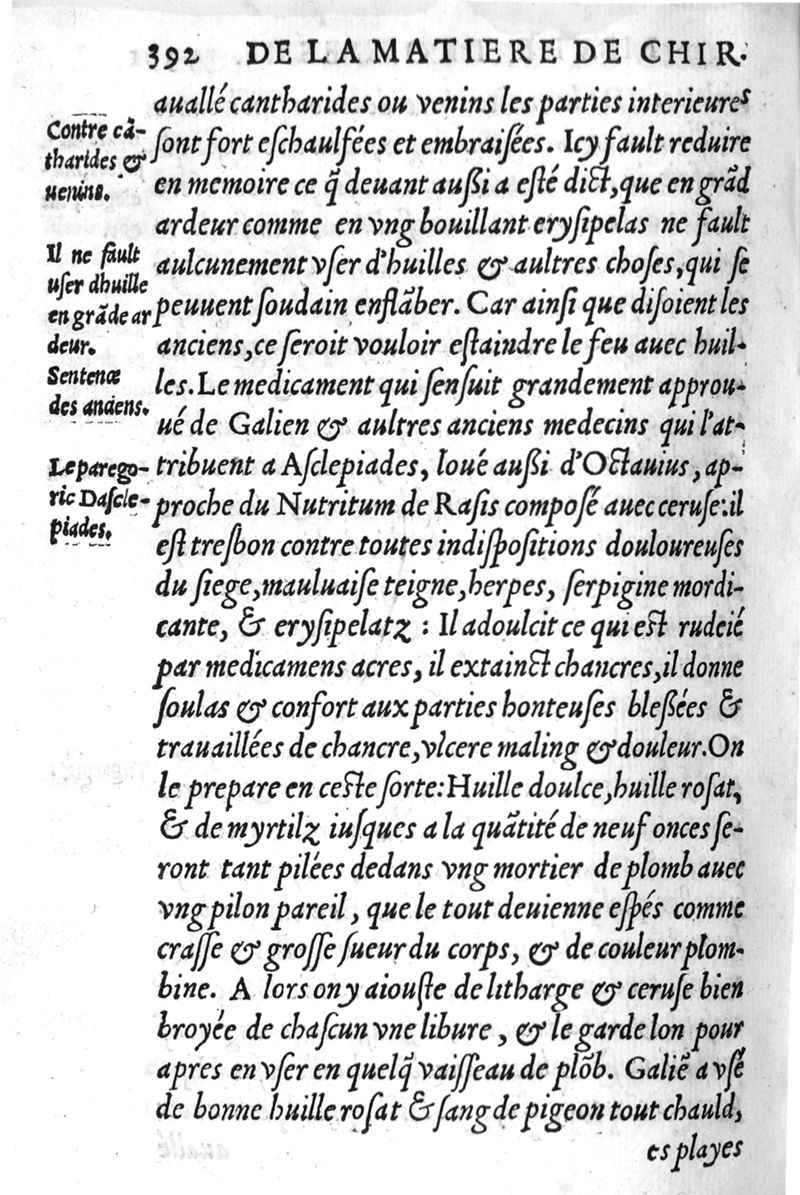 392 DE LA MATIERE DE CHIR.
auallé cantharides ou venins les parties interieures
Contre cā-
tharides &
uenins.
ſont fort eſchaulfées et embraiſées. Icy fault reduire
en memoire ce q̃ deuant auſſi a eſté dict, que en grãd
ardeur comme en vng bouillant eryſipelas ne fault
Il ne fault
uſer dhuille
en grāde ar
deur.
aulcunement vſer d'huilles & aultres choſes, qui ſe
peuuent ſoudain enflãber. Car ainſi que diſoient les
anciens, ce ſeroit vouloir eſtaindre le feu auec huil-
Sentence
des anciens.
les. Le medicament qui ſenſuit grandement approu-
ué de Galien & aultres anciens medecins qui l'at-
Le parego-
ric Daſcle-
piades.
tribuent a Aſclepiades, loué auſſi d'Octauius, ap-
proche du Nutritum de Raſis compoſé auec ceruſe: il
eſt treſbon contre toutes indiſpoſitions douloureuſes
du ſiege, mauluaiſe teigne, herpes, ſerpigine mordi-
cante, & eryſipelatz : Il adoulcit ce qui eſt rudeié
par medicamens acres, il extainct chancres, il donne
ſoulas & confort aux parties honteuſes bleſſées &
trauaillées de chancre, vlcere maling & douleur. On
le prepare en ceſte ſorte: Huille doulce, huille roſat,
& de myrtilz iuſques a la quãtité de neuf onces ſe-
ront tant pilées dedans vng mortier de plomb auec
vng pilon pareil, que le tout deuienne eſpés comme
craſſe & groſſe ſueur du corps, & de couleur plom-
bine. A lors on y aiouſte de litharge & ceruſe bien
broyée de chaſcun vne libure, & le garde lon pour
apres en vſer en quelq̃ vaiſſeau de plõb. Galiẽ a vſé
de bonne huille roſat & ſang de pigeon tout chauld,
es playes